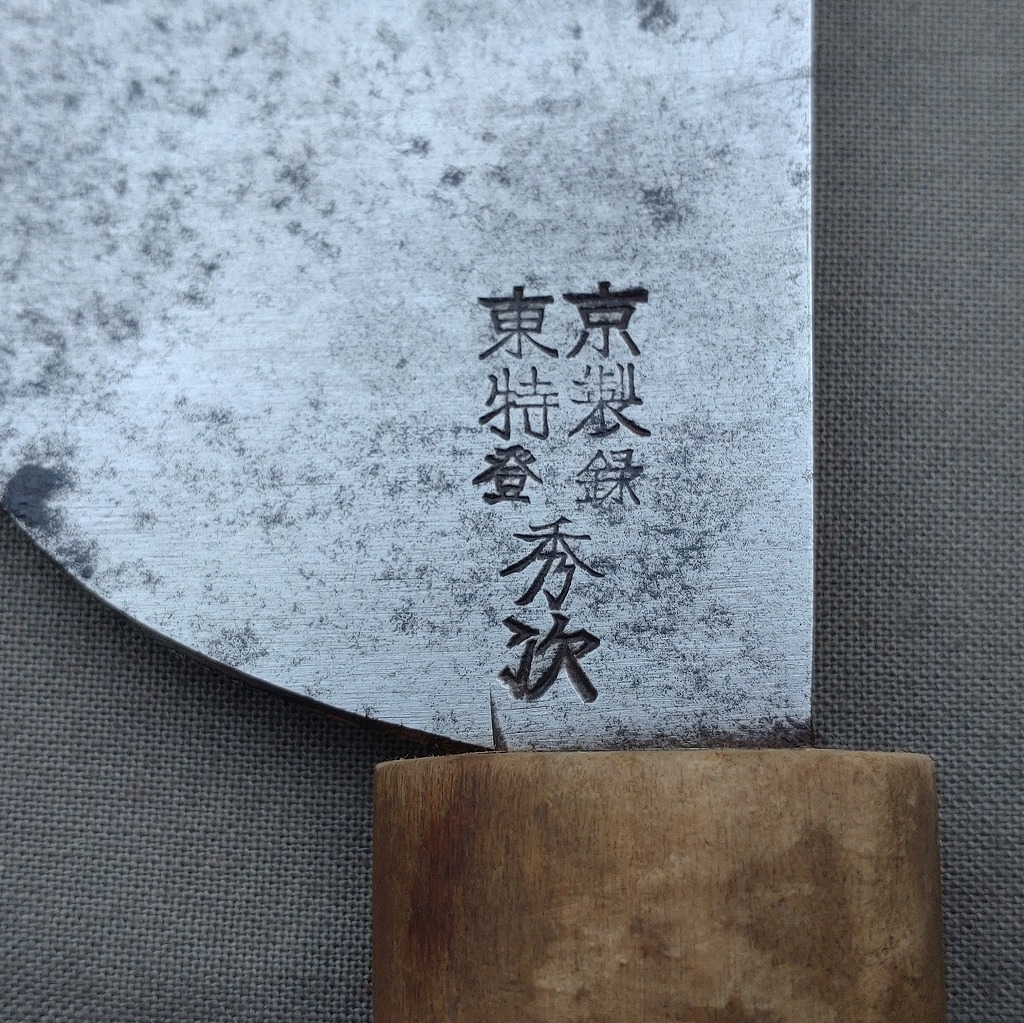 東京
特製
登録
秀次